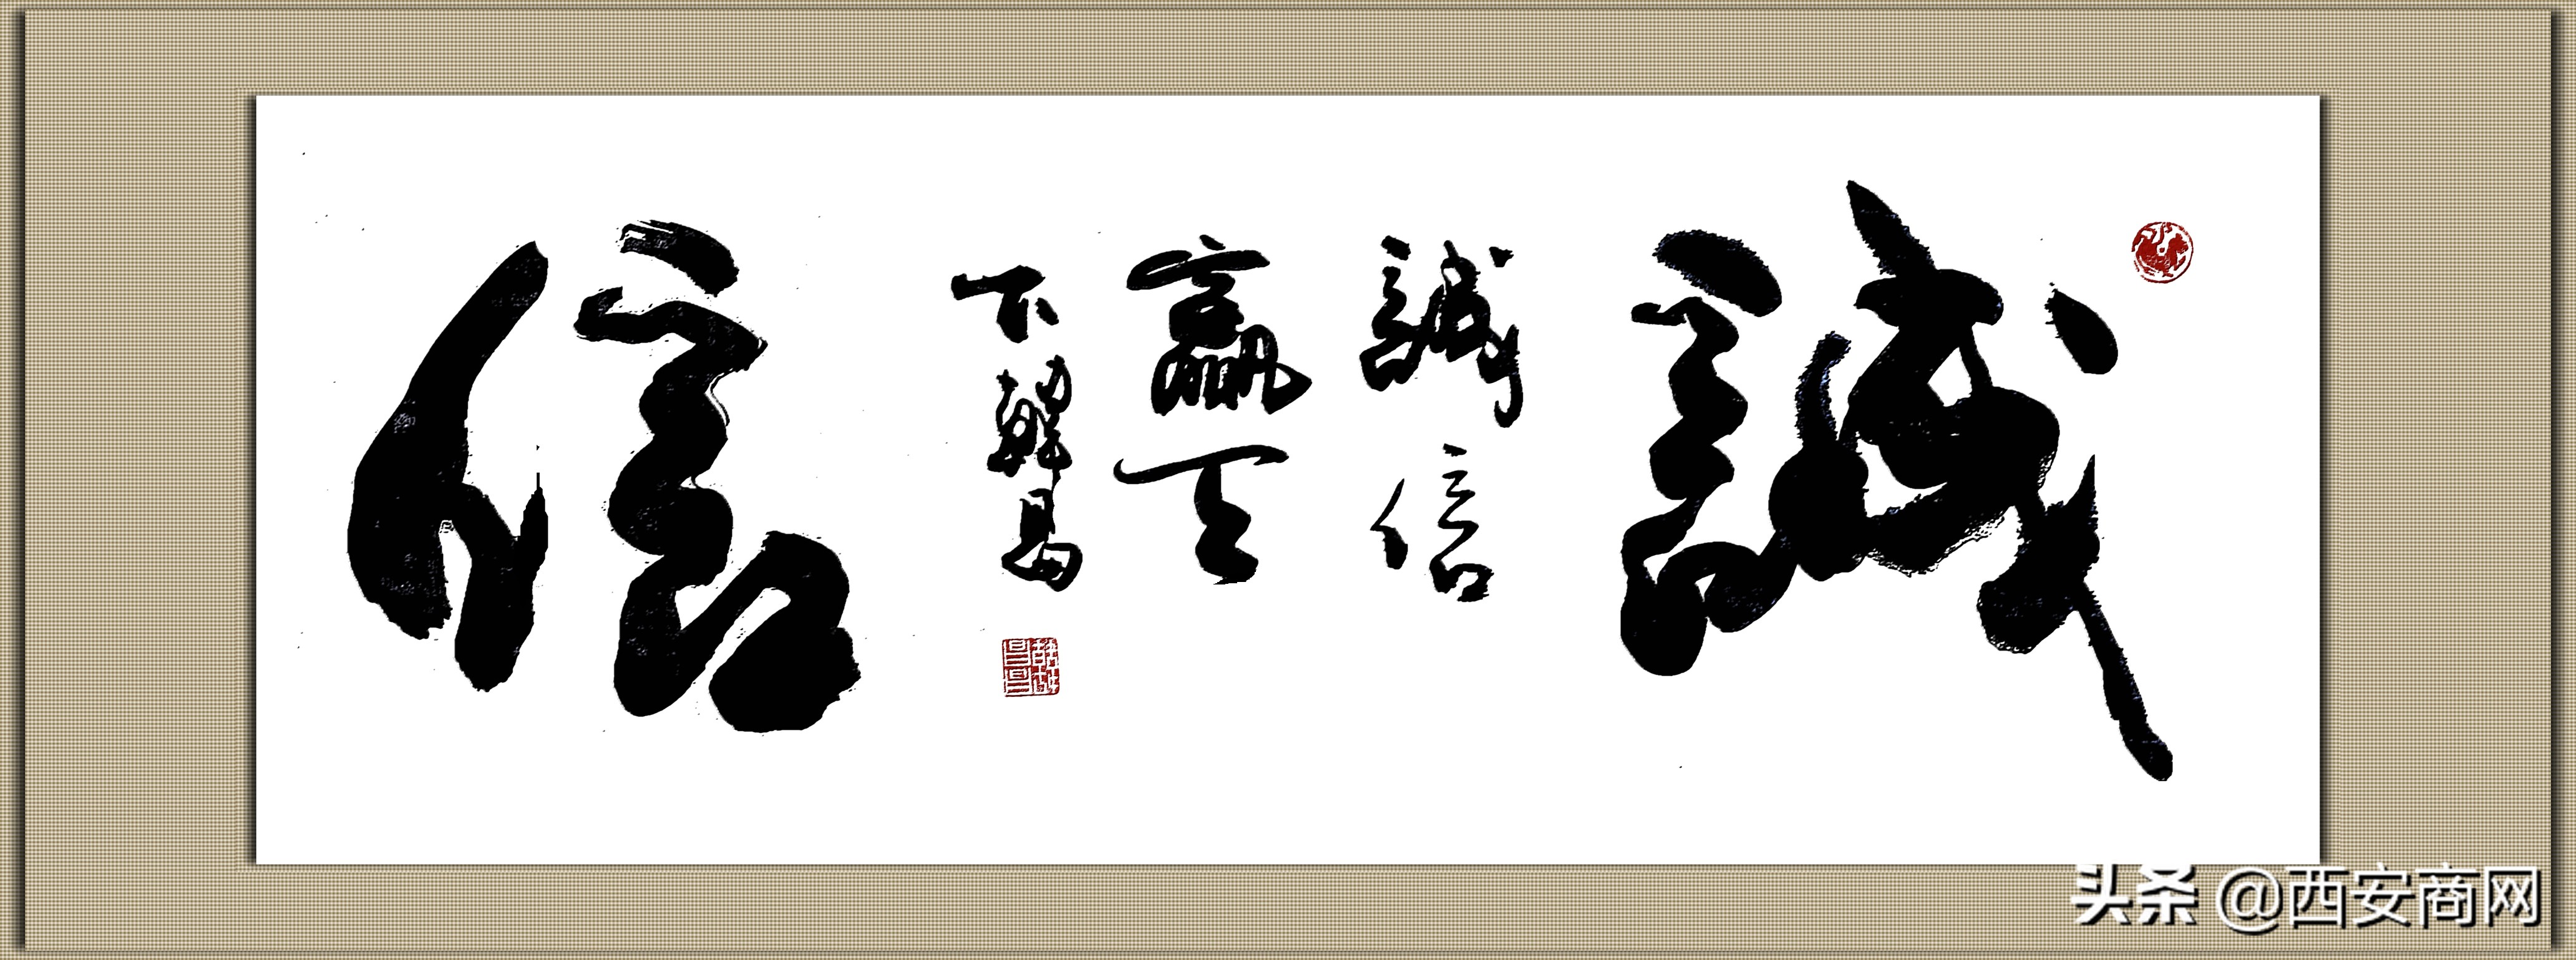 誠
誠信
贏天
下韓昌
信
头条 @西安商网